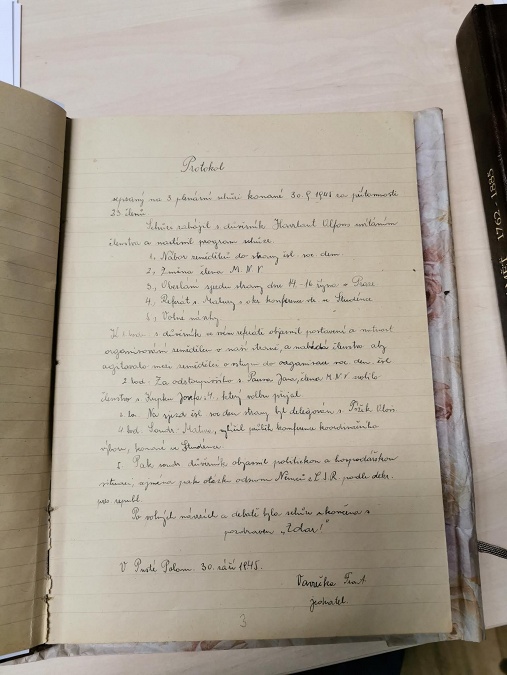 Protokol
sepsaný na 3 plenární schůzi konané 30.9 1945 za přítomnosti
23 členů
Schůze zahájil s důvěrník Havrlant Alfons uvítáním
členstva a nastínil program schůze
1, Nábor zemědělců do strany čsl. soc dem
2, Změna člena M. N V
3, Obeslání sjezdu strany dne 14-16 října v Praze
4, Referát s Matury z okr konference ve Studénce
5, Volné návrhy
s důvěrník ve svém referátu objasnil postavení a nutnost
organisování zemědělců v naší straně, a nabádá členstvo aby
agitovalo mezi zemědělci o vstupu do organisace soc dem. čsl
2 bod. Za odstoupivšího s Pavra Jana, člena M N V zvolilo
členstvo s Krupku Josefa, který volbu přijal
3 bo Na sjezd čsl soc dem strany byl delegován s. Požik Alois
4 bod Soudr. Matura, průběh konference koordinačního
výboru, konané ve Studénce
5. Pak soudr důvěrník objasnil politickou a hospodářskou
situaci, zejména pak otázku odsunu Němců z Č.S.R. podle dekr.
pres republ.
Po volných návrzích a debatě byla schůze skončena s
pozdravem "Zdar!"
V Pusté Polomi. 30. září 1945.
Vavrečka Frant
jednatel
3
1762 - 1885